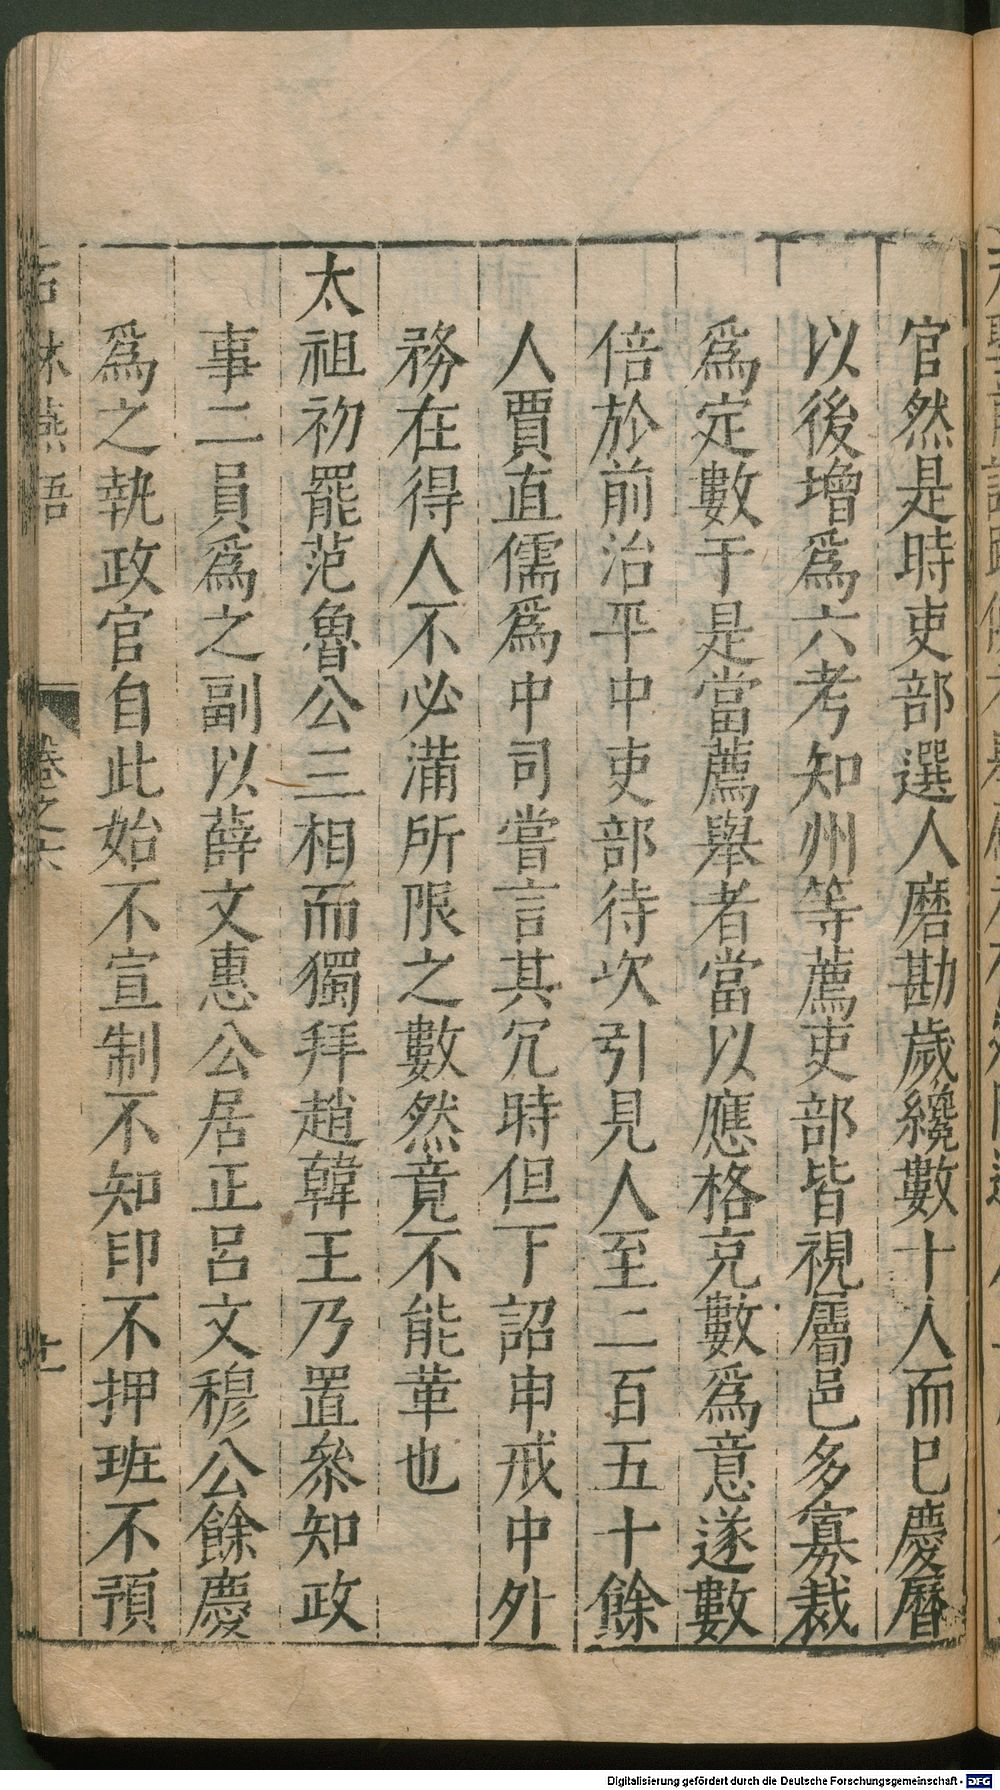 官然是時吏部選人磨勘歲纔數十人而巳慶曆
以後增爲六考知州等薦吏部皆視屬邑多寡裁
爲定數于是當薦舉者當以應格充數爲意遂數
倍於前治平中吏部待次引見人至二百五十餘
人賈直儒爲中司嘗言其冗時但下詔申戒中外
務在得人不必滿所限之數然竟不能革也
太祖初罷范魯公三相而獨拜趙韓王乃置參知政
事二員爲之副以薛文惠公居正呂文穆公餘慶
爲之執政官自此始不宣制不知印不押班不預
石林燕語
卷之六
Digitalisierung gefördert durch die Deutsche Forschungsgemeinschaft - DFG